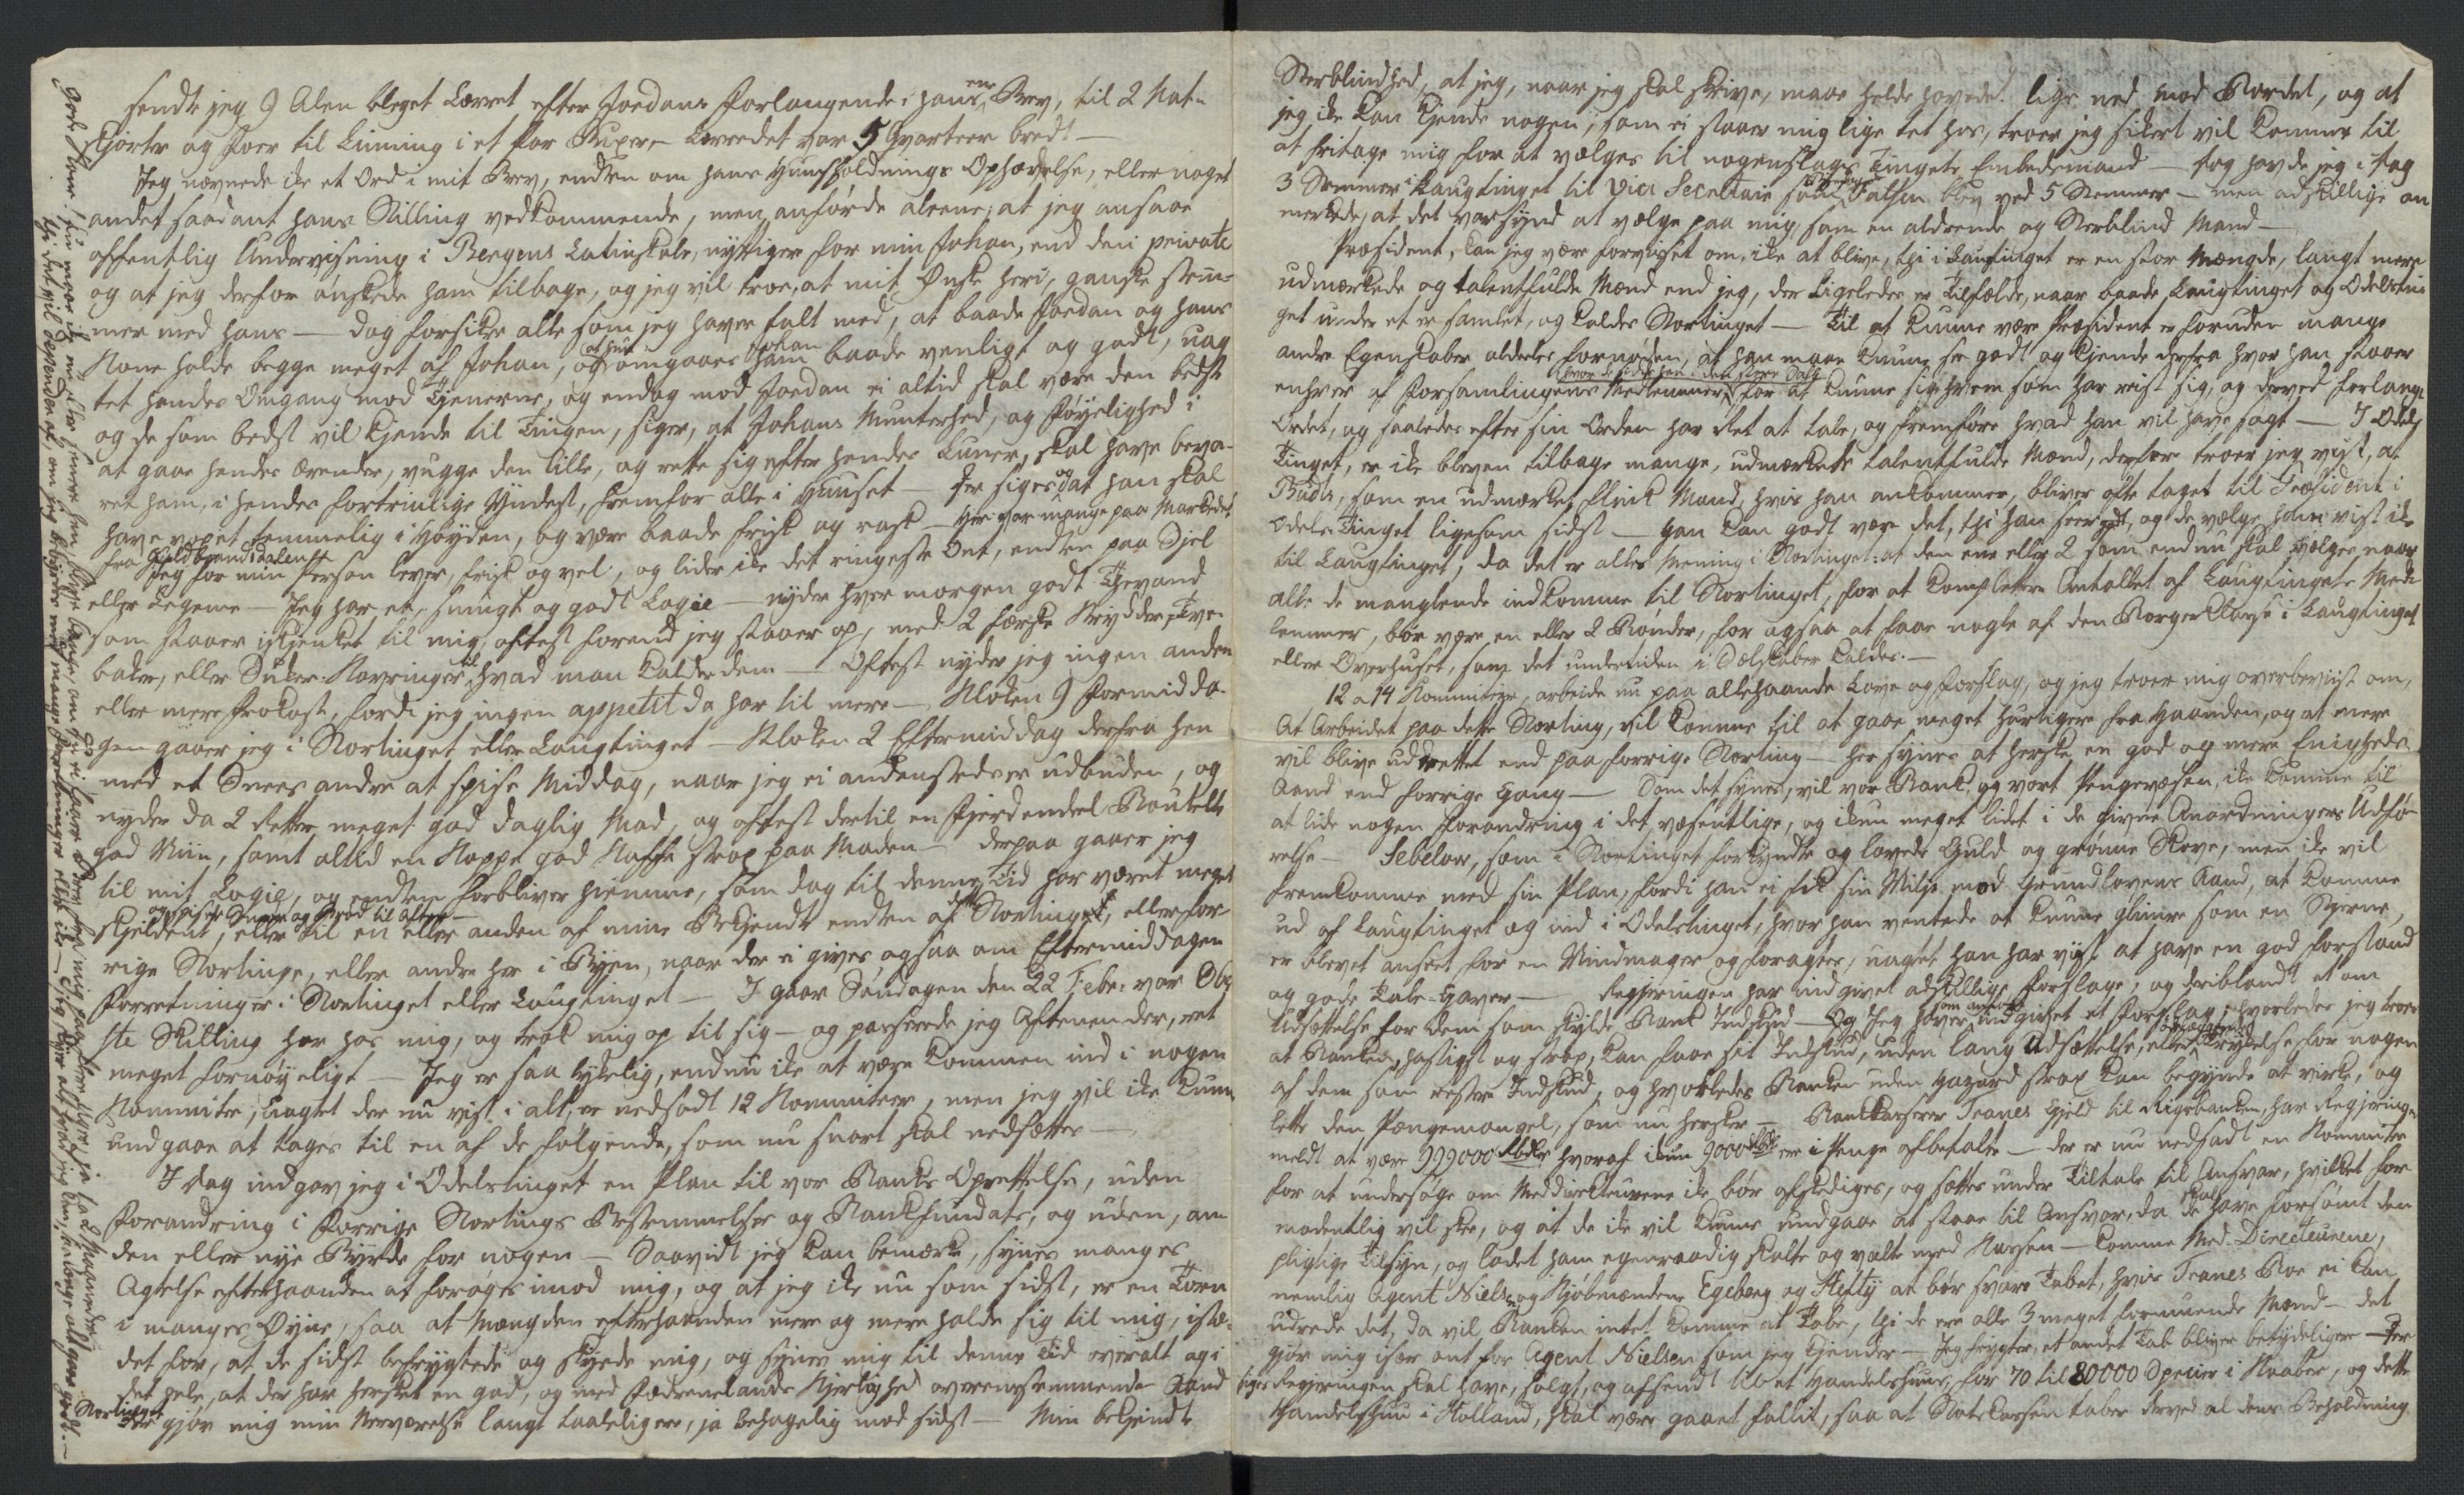 sendte jeg 9 Alen bleget Lærret efter Joedans Forlangende i hans en Brev, til 2 Nat-
skjorter og Foer til Linning i et Par Buxer, Lærredet var 5 Qvarteer bredt —
Jeg nævnede ike et Ord i mit Brev, endten om hans Huusholdnings Ophævelse, eller noget
andet saadant hans Stilling vedkommende, men anførde aleene, at jeg ansaae
offentlig Underviisning i Bergens Latinskole, nyttiger for min Johan, end den private
og at jeg derfor ønskede ham tilbage, og jeg vil troe, at mit Ønske heri, ganske stem-
mer med hans — dog forsikre alle som jeg haver talt med, at baade Joedan og hans
Kone holde begge meget af Johan, og at hun omgaaes Johan ham baade venligt og godt, uag
tet hendes Omgang mod Tjenerne, og endog mod Joedan ei altid skal være den bedste
og de som bedst vil kjende til Tingen, siger, at Johans Munterhed, og Føyelighed i
at gaae hendes Ærender, vugge den lille, og rette sig efter hendes Luner, skal have beva-
ret ham, i hendes fortrinlige Yndest, fremfor alle i Huuset — Der siges og at han skal
have voxet temmelig i Høyden, og være baade frisk og rask — Her var mange paa Markedet
fra Guldbrandsdalen
Jeg for min Person lever, frisk og vel, og lider ike det ringeste Ont, endten paa Sjel
eller Legeme — Jeg har et smugt og godt Logie — nyder hver morgen godt Thevand
som staaer iskjenket til mig, oftest forend jeg staaer op, med 2 færske Krydder, Tve-
baker, eller Suker-Kavringer, hvad man kalder dem — Oftest nyder jeg ingen anden
eller mere Frokost, fordi jeg ingen appetit da har til mere — Kloken 9 Formidda-
gen gaaer jeg i Stortinget eller Laugtinget — Kloken 2 Eftermiddag derfra hen
med et Snees andre at spise Middag, naar jeg ei andenstedes er udbuden, og
nyder da 2 Retter meget god daglig Mad, og oftest dertil en Fjerdendeel Boutelle
god Viin, samt altid en Koppe god Kaffe strax paa Maden — derpaa gaaer jeg
til mit Logie, og endten forbliver hiemme, som dog til denne Tid har været meget
skjeldent, og spiser Smør og Brød til Aften — eller til en eller anden af mine Bekjendte endten af dette Stortinget, eller for-
rige Stortinge, eller andre her i Byen, naar der ei gives ogsaa om Eftermiddagen
Forretninger i Stortinget eller Laugtinget — I gaar Søndagen den 22 Febr: var Ob
ste Skilling her hos mig, og trak mig op til sig — og passerede jeg Aftenen der, ret
meget fornøyeligt — Jeg er saa lykelig, endnu ike at være kommen ind i nogen
Kommitee, uagtet der nu vist i alt, er nedsadt 12 Kommiteer, men jeg vil ike kun
undgaae at tages til en af de følgende, som nu snart skal nedsættes —
I Dag indgav jeg i Odelstinget en Plan til vor Banks Oprettelse, uden
Forandring i Forrige Stortings Bestemmelser og Bankfundats, og uden, an
den eller nye Byrde for nogen — Saavidt jeg kan bemærke, synes manges
Agtelse efterhaanden at forøges imod mig, og at jeg ike nu som sidst, er en Torn
i manges Øyne, saa at Mængden efterhaanden mere og mere holde sig til mig, iste-
det for, at de sidst befrygtede og skyede mig, og synes mig til denne Tid overalt og i
det hele, at der har hersket en god, og med Fædrenelands Kjerlighed overenstemmende Aand
Stortinget
gjør mig min Nærværelse langt taaleligere, ja behagelig mod sidst — Min bekjendte
Gode Kone!
thi det vil
om jeg bliver med mange Forretninger eller ike
Sterblindhed, at jeg, naar jeg skal skrive, maae holde hovedet lige ned mod Bordet, og at
jeg ike kan kjende nogen, som ei staaer mig lige tet hos, troer jeg sikert vil komme til
at fritage mig for at vælges til nogenslags Tingets Embedsmand — dog havde jeg i Dag
3 Stemmer i Laugtinget til Vice Secretaire som Falsen blev ved 5 Stemmer — men adskillige an
merkede, at det var synd at vælge paa mig, som en aldrende og Sterblind Mand —
Præsident, kan jeg være forvisset om, ike at blive, thi i Laugtinget er en stor Mængde, langt mere
udmærkede og talentfulde Mænd end jeg, der ligeledes er Tilfælde, naar baade Laugtinget og Odelstin
get under et er samlet, og kaldes Stortinget — Til at kunne være Præsident er foruden mange
andre Egenskaber aldeeles fornøden, at han maae kunne see godt og kjende derfra hvor han staaer
enhver af Forsamlingens Medlemmer, hvor de sidder hen i den store Sahl for at kunne sig hvem som har reist sig, og derved forlangt
Ordet, og saaledes efter sin Orden har Ret at tale, og fremføre hvad han vil have sagt — I Odels
Tinget, er ike bleven tilbage mange, udmærkede talentfulde Mænd, derfor troer jeg vist, at
Budts, som en udmærket flink Mand, hvis han ankommer, bliver ofte taget til Præsident i
Odels Tinget ligesom sidst — Han kan godt være det, thi han seer godt, og de vælge ham vist ike
til Laugtinget, da det er alles Mening i Stortinget: at den ene eller 2 som endnu skal vælges, naar
alle de manglende indkomme til Stortinget, for at komplettere Antallet af Laugtingets Med-
lemmer, bør være en eller 2 Bønder, for ogsaa at faae nogle af den Borger Klasse i Laugtinget
eller Overhuset, som det undertiden i Selskaber kaldes. —
12 a 14 Kommiteer, arbeide nu paa allehaande Love og Forslag, og jeg troer mig overbeviist om,
at Arbeidet paa dette Storting, vil komme til at gaae meget hurtigere fra Haanden, og at mere
vil blive udrettet end paa forrige Storting — her synes at herske en god og mere Enigheds
Aand end forrige Gang — Som det synes, vil vor Bank og vort Pengevæsen, ike komme til
at lide nogen Forandring i det væsentlige, og ikun meget lidet i de givne Anordningers Udfø-
relse — Sebelow, som i Stortinget forkyndte og lovede Guld og grønne Skove, men ike vil
fremkomme med sin Plan, fordi han ei fik sin Vilje mod Grundlovens Aand, at komme
ud af Laugtinget og ind i Odelstinget, hvor han ventede at kunne glimre som en Stjerne,
er blevet anseet for en Vindmager og foragtes, uagtet han har vist at have en god Forstand
og gode Tale-Gaver — Regjeringen har indgivet adskillige Forslage, og deriblandt et om
Udsættelse for dem som skylde Bank Indskud — Og Jeg haver som anført indgivet et Forslag, hvorledes jeg troer
at Banken, hastigst og strax, kan faae sit Indskud, uden lang Udsættelse, eller Trykelse for nogen
af dem som restere Indskud, og hvorledes Banken uden Hazard strax kan begynde at virke, og
lette den Pængemangel, som nu hersker — Bankkasserer Tranes Gjeld til Rigsbanken, har Regjeringen
meldt at være 999000 Rbdlr hvoraf ikun 9000 Rbdl er i Penge afbetalte — der er nu nedsadt en Kommitee
for at undersøge om Meddirecteurerne ike bør afskediges, og sættes under Tiltale til Ansvar, hvilket for
modentlig vil skee, og at de ike vil kunne undgaae at staae til Ansvar, da de skal have forsømt den
pligtige Tilsyn, og ladet ham egenraadig skalte og valte med Kassen — komme Med-Directeurene,
nemlig Agent Nielsen og Kjøbmændene Egeberg og Hefty at bør svare Tabet, hvis Tranes Boe ei kan
udrede det, da vil Banken intet komme at tabe, thi de ere alle 3 meget formuende Mænd — det
gjør mig især ont for Agent Nielsen som jeg kjender — Jeg frygter, et andet Tab bliver betydeligere — Der
siges Regjeringen skal have, solgt, og afsendt til et Handelshuus, for 70 til 80000 Specier i Kaaber, og dette
Handelshuus i Holland, skal være gaaet fallit, saa at Statskassen taber derved al dens Beholdning